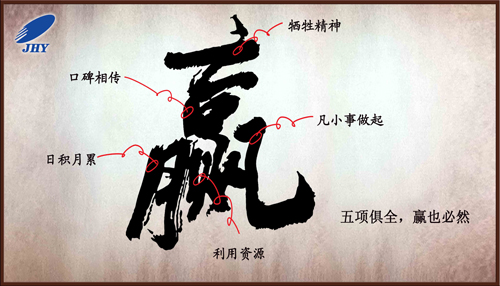 JHY
牺牲精神
口碑相传
赢
凡小事做起
日积月累
五项俱全，赢也必然
利用资源